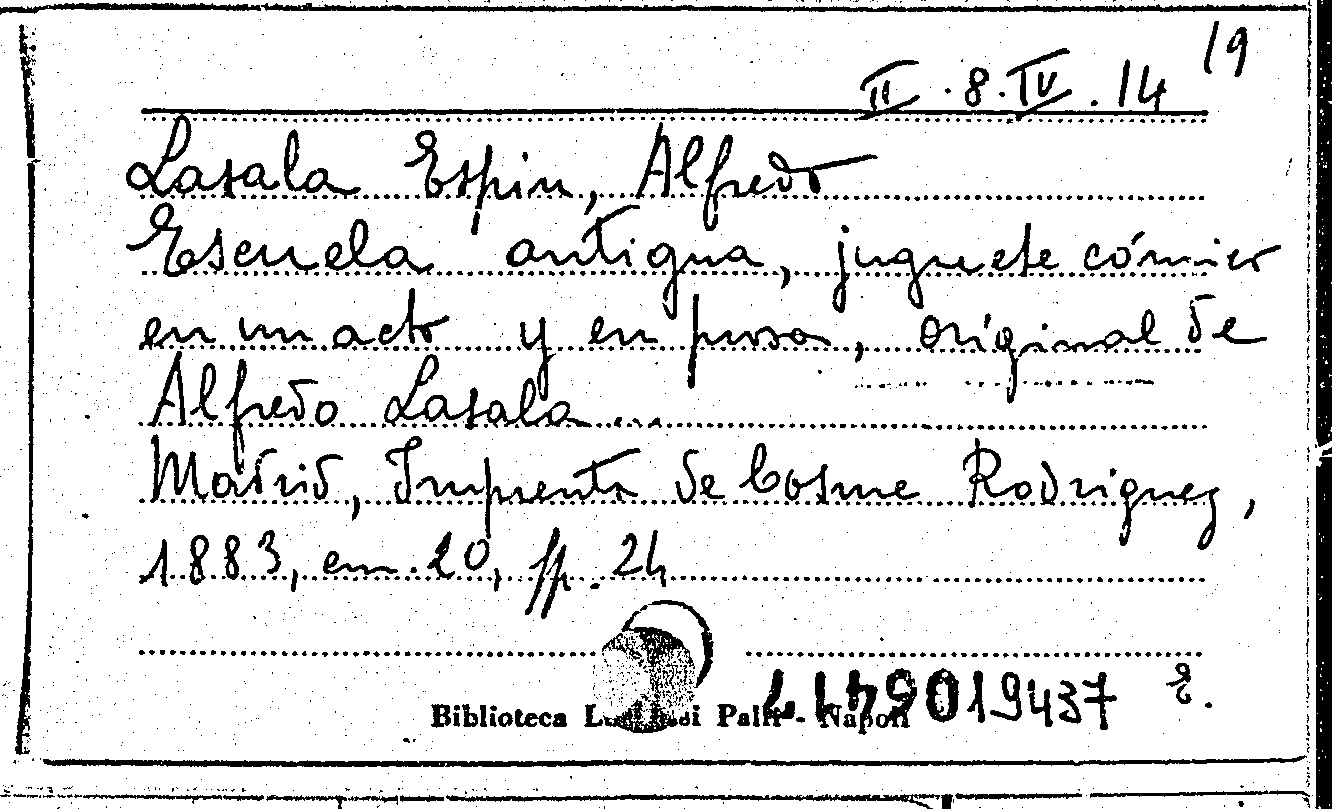 19
II.8.IV.14
Lasala Espin, Alfredo
Escuela antigua, juguete cómico
en un acto y en prosa, original de
Alfredo Lasala ...
Madrid, Imprenta de Cosme Rodriguez,
1883, em. 20, pp. 24
Biblioteca di Palli - Napoli 019437